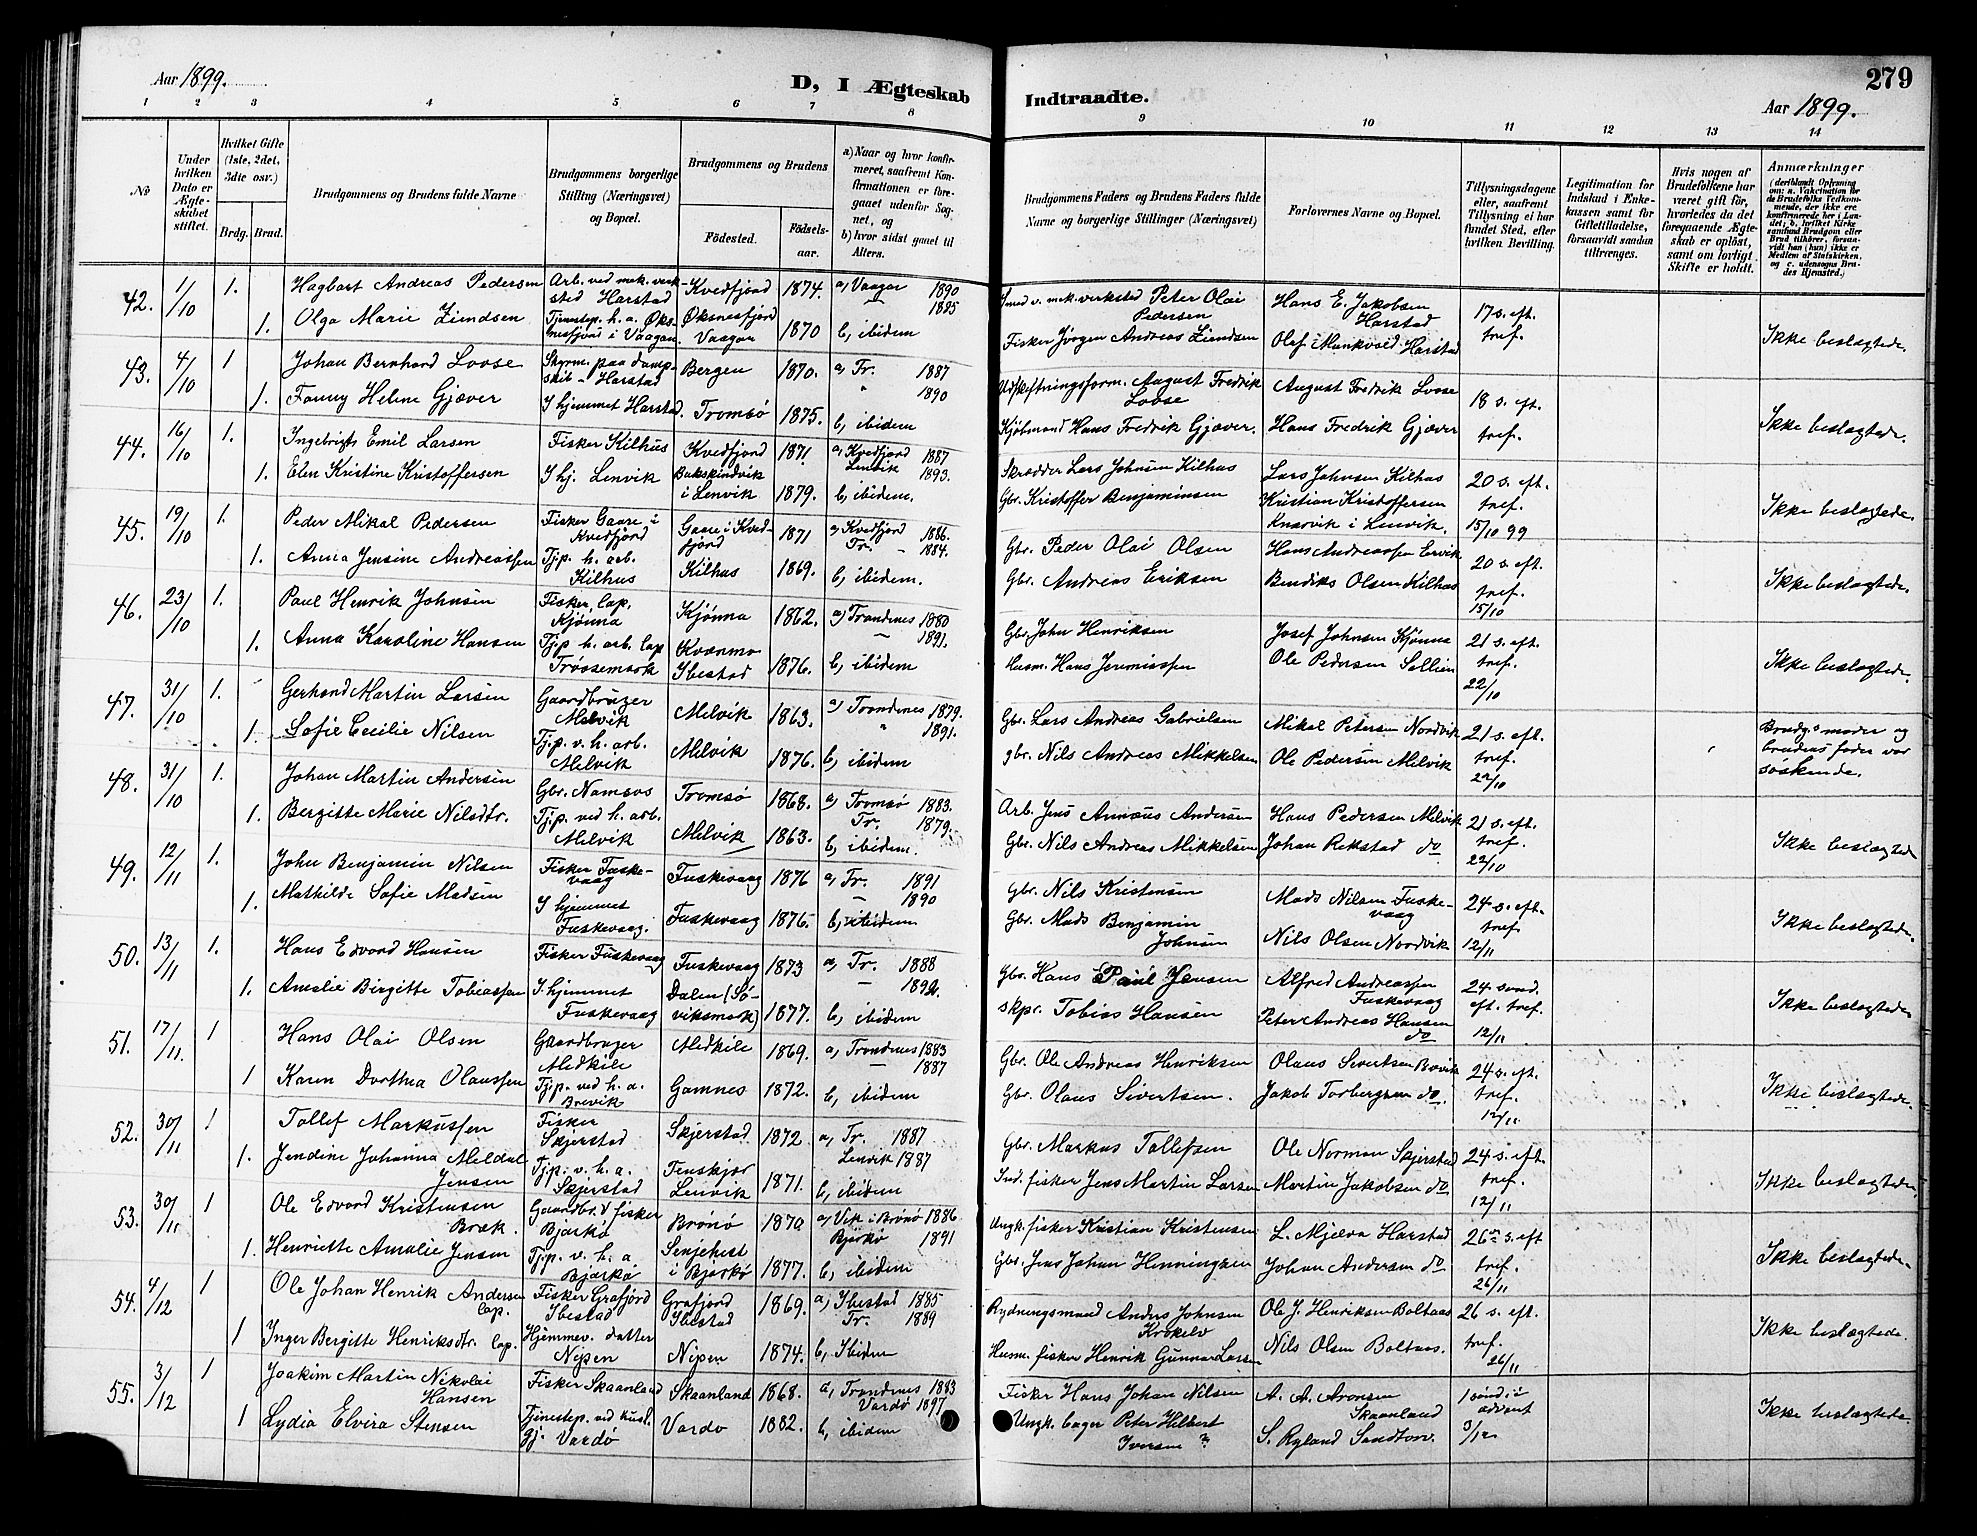 279
Aar 1899.
D, I Ægteskab Indtraadte.
Aar 1899.
1 2 3 4 5 6 7 8 9 10 11 12 13 14
No
Under hvilken Dato er Ægteskabet stiftet.
Hvilket Gifte (1ste, 2det, 3dte osv.)
Brdg. Brud.
Brudgommens og Brudens fulde Navne
Brudgommens borgerlige Stilling (Næringsvei) og Bopæl.
Brudgommens og Brudens
Födested.
Födselsaar.
a) Naar og hvor konfirmeret, saafremt Konfirmationen er foregaaet udenfor Sognet, og
b) hvor sidst gaaet til Alters.
Brudgommens Faders og Brudens Faders fulde Navne og borgerlige Stillinger (Næringsvei)
Forlovernes Navne og Bopæl.
Tillysningsdagene eller, saafremt Tillysning ei har fundet Sted, efter hvilken Bevilling.
Legitimation for Indskud i Enkekassen samt for Giftetilladelse, forsaavidt saadan tiltrænges.
Hvis nogen af Brudefolkene har været gift för, hvorledes da det foregaaende Ægteskab er oplöst, samt om lovligt Skifte er holdt.
Anmærkninger
(deriblandt Oplysning om: a. Vakcination for de Brudefolks Vedkommende, der ikke ere konfirmerede her i Landet; b. hvilket Kirkesamfund Brudgom eller Brud tilhörer, forsaavidt han (hun) ikke er Medlem af Statskirken, og c. udensogns Brudes Hjemsted.)
42. 1/10 1. Hagbart Andreas Pedersen Arb. ved mek. verksted Harstad Kvedfjord 1874. a, Vaagan 1890 Smed v. mek. verksted Peter Olai Pedersen Hans E. Jakobsen Harstad 17 s. eft. tref. Ikke beslægtede.
1. Olga Marie Zimdsen Tjenestep. h. a. Øksnesfjord i Vaagan. Øksnesfjord Vaagan 1870 – 1885 b, ibidem Fisker Jörgen Andreas Ziemdsen Olaf Munkvold Harstad
43. 4/10 1 Johan Bernhard Loose Styrm. paa dampskib - Harstad Bergen 1870. a, Tr. 1887 Udskiftningsform. August Fredrik Loose August Fredrik Loose 18 s. eft. tref. Ikke beslægtede.
1. Fanny Helene Gjæver I hjemmet Harstad. Tromsö 1875. " 1890 b, ibidem Kjöbmand Hans Fredrik Gjæver. Hans Fredrik Gjæver
44. 16/10 1. Ingebrigts Emil Larsen Fisker Kilhus Kvedfjord 1871. a, Kvedfjord 1887 Skrædder Lars Johnsen Kilhus Lars Johnsen Kilhus 20 s. eft. tref. 15/10 99 Ikke beslægtede.
1. Elen Kristine Kristoffersen I hj. Lenvik Bukskindvik i Lenvik 1879. Lenvik 1893. b, ibidem. Gbr. Kristoffer Benjaminsen Kristian Kristoffersen Knarvik i Lenvik.
45. 19/10 1. Peder Mikal Pedersen Fisker Gaare i Kvedfjord Gaare i Kvedfjord 1871 a, Kvedfjord 1886. Gbr. Peder Olai Olsen Hans Andreassen Ervik 20 s. eft. tref. 15/10 Ikke beslægtede.
1. Anna Jensine Andreassen Tj.p. h. arb. Kilhus Kilhus 1869. Tr. – 1884. b, ibidem. Gbr. Andreas Eriksen Bendiks Olsen Kilhus
46. 23/10 1. Paul Henrik Johnsen Fisker, lap, Kjönna Kjönna 1862. a, Trondenes 1880 Gbr. John Henriksen Josef Johnsen Kjönna 21 s. eft. tref. 22/10 Ikke beslægtede.
1. Anna Karoline Hansen Tj.p h. arb. lap Trössemark Kvænmo Ibestad 1876. – 1891. b, ibidem Husm. Hans Jeremiassen Ole Pedersen Sollien
47. 31/10 1. Gerhard Martin Larsen Gaardbruger Melvik Melvik 1863. a, Trondenes 1879. Gbr. Lars Andreas Gabrielsen Mikal Petersen Nordvik 21 s. eft. tref. 22/10 Brudg.s moder og brudens fader var söskende.
1. Sofie Cecilie Nilsen Tj.p. v. h. arb. Melvik Melvik 1876. " 1891. b, ibidem gbr. Nils Andreas Mikkelsen Ole Pedersen Melvik
48. 31/10 1. Johan Martin Andersen Gbr. Namsos Tromsö 1868. a, Tromsö 1883. Arb. Jens Annæus Andersen Hans Pedersen Melvik 21 s. eft. tref. 22/10 Ikke beslægtede
1. Bergitte Marie Nilsdtr. Tj.p. ved h. arb. Melvik Melvik 1863. Tr. 1879. b, ibidem. Gbr. Nils Andreas Mikkelsen Johan Rekstad do
49. 12/11 1. John Benjamin Nilsen Fisker Fuskevaag Fuskevaag 1876 a, Tr. 1891 Gbr. Nils Kristensen Mads Nilsen Fuskevaag 24 s. eft. tref 12/11 Ikke beslægtede.
1. Mathilde Sofie Madsen I hjemmet Fuskevaag. Fuskevaag 1875. – 1890 b, ibidem Gbr. Mads Benjamin Johnsen Nils Olsen Nordvik
50. 13/11 1. Hans Edvard Hansen Fisker Fuskevaag Fuskevaag 1873 a, Tr. 1888 Gbr. Hans Paul Jensen Alfred Andreassen Fuskevaag 24 sönd. eft. tref. 12/11 Ikke beslægtede
1. Amalie Birgitte Tobiassen I hjemmet Fuskevaag Dalen (Söviksmark) 1877. – 1892. b, ibidem skpr. Tobias Hansen Peter Andreas Hansen do
51. 17/11. 1 Hans Olai Olsen Gaardbruger Medkile Medkile 1869. a, Trondenes 1883 Gbr. Ole Andreas Henriksen Olaus Sivertsen Brevik 24 s. eft. tref. 12/11 Ikke beslægtede.
1 Karen Dorthea Olaussen Tj.p. ved h. a. Brevik Gamnes 1872. – 1887 b, ibidem Gbr. Olaus Sivertsen. Jakob Torbergsen do.
52. 30/11 1 Tollef Markussen Fisker Skjerstad Skjerstad 1872 a, Tr. 1887 Gbr. Markus Tollefsen Ole Norman Skjerstad 24 s. eft. tref. 12/11 Ikke beslægtede.
1. Jendine Johanna Meldal Jensen Tj.p. v. h. a. Skjerstad Finskjor Lenvik 1871. Lenvik 1887 b, ibidem Ind. fisker Jens Martin Larsen Martin Jakobsen do
53. 30/11 1 Ole Edvard Kristensen Bræk. Gaardbr. & fisker Bjarkö Brönö 1870 a, Vik i Brönö 1886 Ungk. fisker Kristian Kristensen L. Mjelva Harstad 26de s. eft tref. 26/11 Ikke beslægtede.
1. Henriette Amalie Jensen Tj.p. v. h. a Bjarkö Senjehest i Bjarkö 1877. Bjarkö 1891 b, ibidem Gbr. Jens Johan Henningsen Johan Andersen do
54. 4/12 1 Ole Johan Henrik Andersen lap. Fisker Grafjord Ibestad Grafjord Ibestad 1869. a, Ibestad 1885 Rydningsmand Anders Johnsen Krokelv Ole J. Henriksen Boltaas 26 s. eft. tref. 26/11 Ikke beslægtede.
1 Inger Bergitte Henriksdtr. lap. Hjemmev. datter Nipen Nipen 1874. Tr. 1889 b, Ibidem Husm. fisker Henrik Gunnar Larsen Nils Olsen Boltaas.
55. 3/12 1 Joakim Martin Nikolai Hansen Fisker Skaanland Skaanland 1868. a, Trondenes 1883 Fisker Hans Johan Nilsen A. A. Aronsen Skaanland 1 sönd. i advent 3/12 Ikke beslægtede.
1 Lydia Elvira Stensen Tjenestep. ved husl. gj. Vardö Vardö 1882. Vardö 1897 b, ibidem Ungk. bager Peter Hilbert Iversen ? S. Ryland Sandtorv.